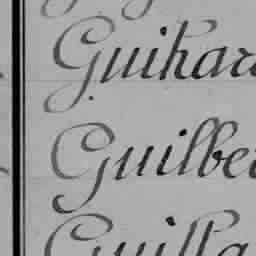 Guihar
Guilbe
Guilla